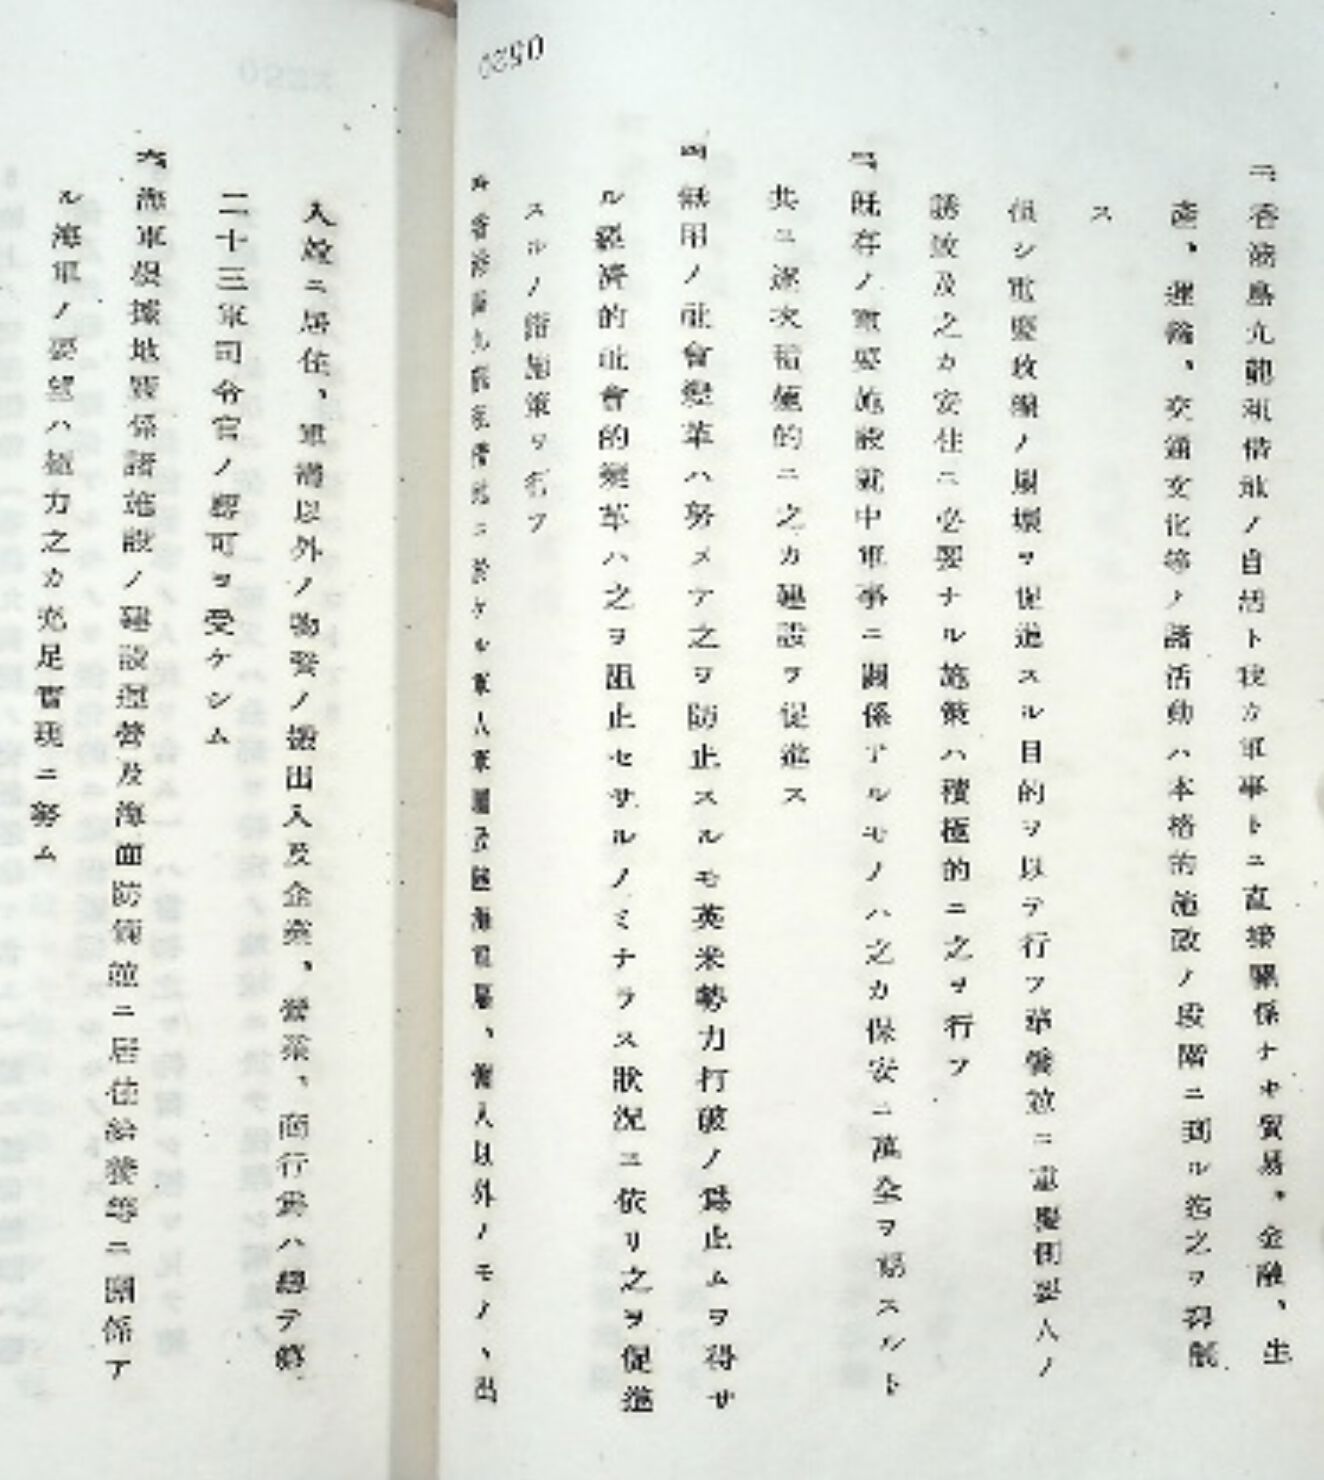 0520
二、香港島九龍租借地ノ自活ト我カ軍事トニ直接關係ナキ貿易、金融、生
産、運輸、交通文化等ノ諸活動ハ本格的施政ノ段階ニ到ル迄之ヲ抑制
ス
但シ重慶政線ノ崩壞ヲ促進スル目的ヲ以テ行フ華僑竝ニ重慶側要人ノ
誘致及之カ安住ニ必要ナル施策ハ積極的ニ之ヲ行フ
三、既存ノ重要施設就中軍事ニ關係アルモノハ之カ保安ニ萬全ヲ期スルト
共ニ逐次積極的ニ之カ建設ヲ促進ス
四、無用ノ社會變革ハ努メテ之ヲ防止スルモ英米勢力打破ノ爲止ムヲ得サ
ル經濟的社會的變革ハ之ヲ阻止セサルノミナラス狀況ニ依リ之ヲ促進
スルノ諸施策ヲ行フ
五、香港島九龍租借地ニ於ケル軍人軍屬及陸海軍雇、傭人以外ノモノヽ出
入竝ニ居住、軍需以外ノ物資ノ搬出入及企業、營業、商行爲ハ總テ第
二十三軍司令官ノ認可ヲ受ケシム
六、海軍根據地關係諸施設ノ建設運營及海面防備竝ニ居住給養等ニ關係ア
ル海軍ノ要望ハ極力之カ充足實現ニ努ム